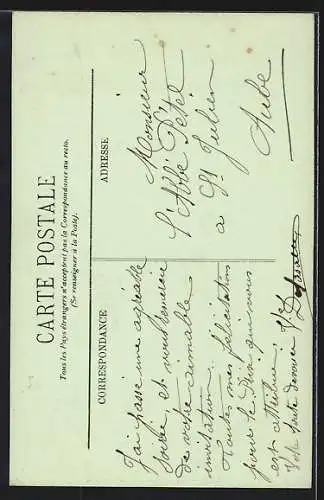 CARTE POSTALE
Tous les Pays étrangers n'acceptent pas la Correspondance au recto.
(Se renseigner à la Poste).
CORRESPONDANCE
ADRESSE
J'ai passé une agréable
soirée, et vous remercie
de votre aimable
invitation.
Toutes mes félicitations
pour le Prix qui vous
est attribué.
Votre tout dévoué
Monsieur
l'Abbé Pétel
à St Julien
Aube